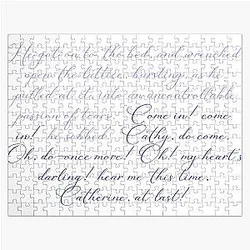 He got on to the bed, and wrenched
open the lattice, bursting, as he
pulled at it, into an uncontrollable
passion of tears. Come in! come
in! he sobbed. Cathy, do come.
Oh, do-once more! Oh! my heart's
darling! hear me this time,
Catherine, at last!